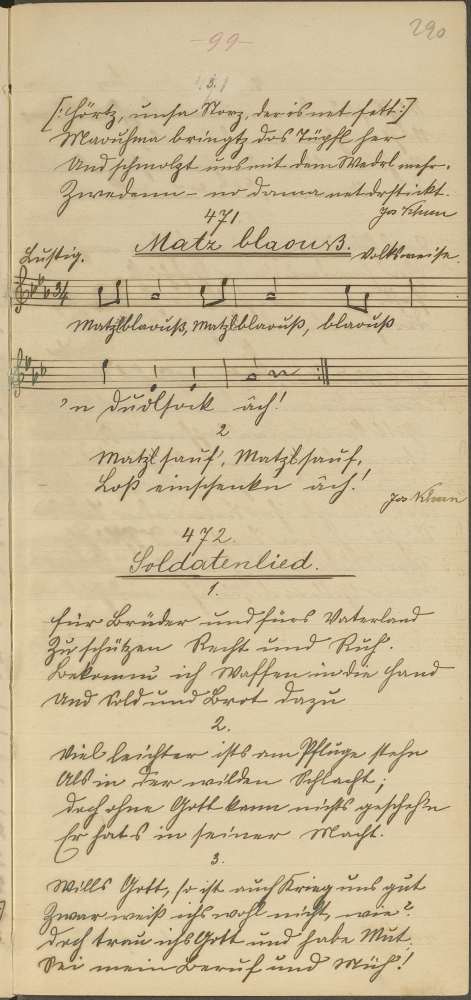 -99-
290
3.
[: Hörts, unsa Norz, der is net fett :]
bringts das Tüpfl her
Und schmolzt uns mit dem Wedel mehr.
Zwedenn – no damma net dastickt.
Jos Thum
471
Matz blaouß.
Lustig.
Volksweise.
3/4
Matzlblaouß, Matzlblaouß, blaouß
'n Dudlsock äch!
2
Matzlsauf, Matzlsauf,
Loß einschenkn äch!
Jos Thum
472.
Soldatenlied.
1.
Für Brüder und fürs Vaterland
Zu schützen Recht und Ruh.
Bekomm ich Waffen in die Hand
Und Sold und Brot dazu
2.
Viel leichter ists am Pfluge stehn
Als in der wilden Schlacht;
Doch ohne Gott kann nichts geschehn
Er hat's in seiner Macht.
3.
Wills Gott, so ist auch Krieg uns gut
Zwar weiß ichs wohl nicht, wie?
Doch trau ichs Gott und habe Mut.
Sei mein Beruf und Müh!